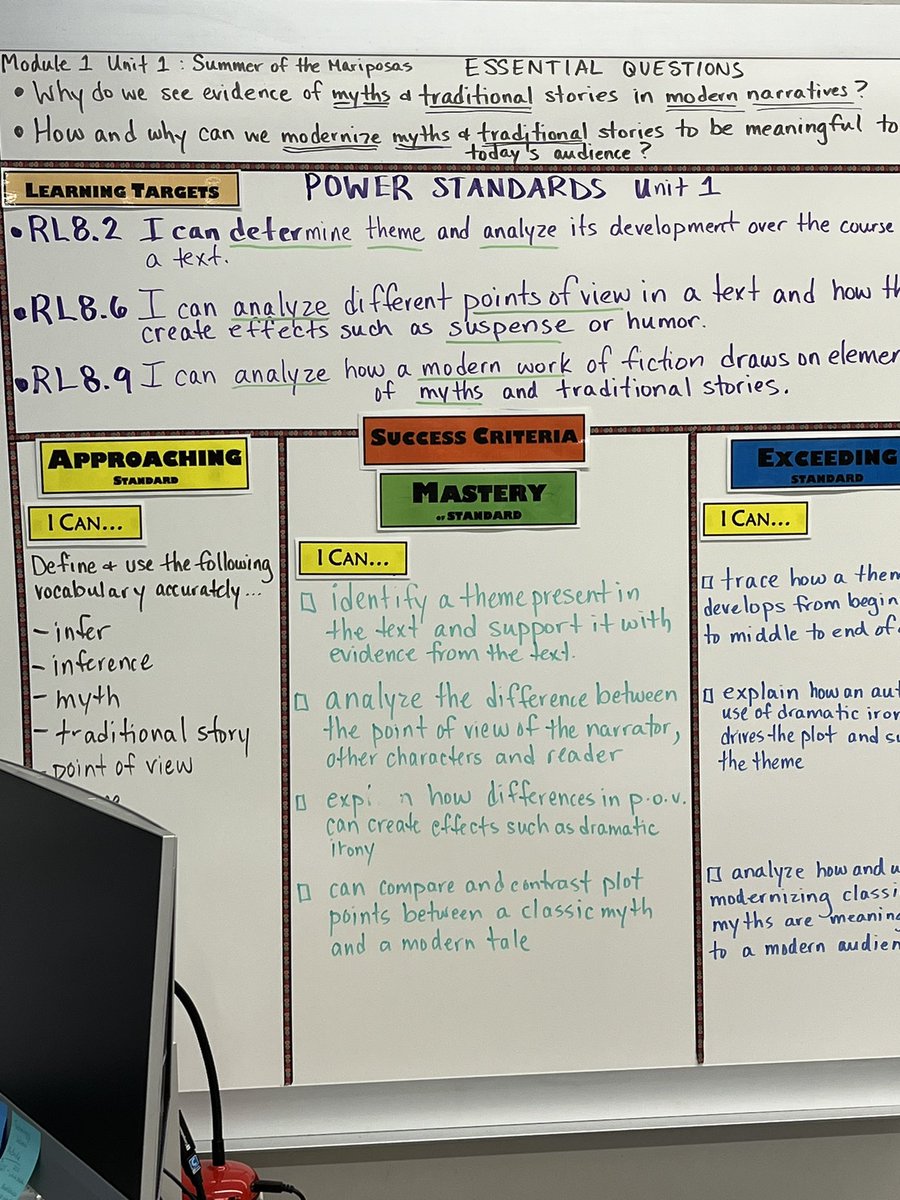 Module 1 Unit 1 : Summer of the Mariposas ESSENTIAL QUESTIONS
• Why do we see evidence of myths & traditional stories in modern narratives?
• How and why can we modernize myths & traditional stories to be meaningful to
today's audience?
LEARNING TARGETS POWER STANDARDS Unit 1
• RL8.2 I can determine theme and analyze its development over the course
a text.
• RL8.6 I can analyze different points of view in a text and how
create effects such as suspense or humor.
• RL8.9 I can analyze how a modern work of fiction draws on
of myths and traditional stories.
SUCCESS CRITERIA
APPROACHING
STANDARD
I CAN...
Define & use the following
vocabulary accurately...
- infer
- inference
- myth
- traditional story
- point of view
MASTERY
OF STANDARD
I CAN...
identify a theme present in
the text and support it with
evidence from the text.
analyze the difference between
the point of view of the narrator,
other characters and reader
how differences in p.o.v.
can create effects such as dramatic
irony
can compare and contrast plot
points between a classic myth
and a modern tale
EXCEEDING
STANDARD
I CAN...
trace how a
develops from
to middle to end of
explain how an
use of dramatic
drives the plot and
the theme
analyze how and
modernizing
myths are
to a modern